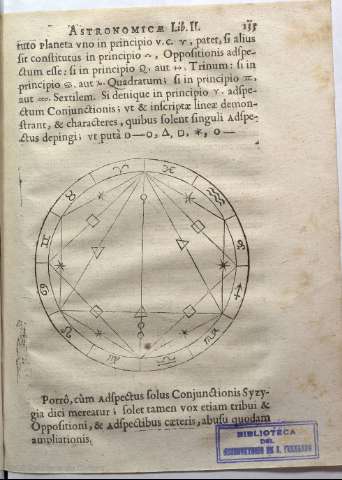 ASTRONOMICÆ Lib. II. 135
tuto Planeta vno in principio v.c. ♈, patet, si alius
sit constitutus in principio ♎, Oppositionis adspe-
ctum esse: si in principio ♌, aut ♐, Trinum: si in
principio ♋, aut ♑, Quadratum; si in principio ♊,
aut ♒, Sextilem. Si denique in principio ♈, adspe-
ctum Conjunctionis; vt & inscriptæ lineæ demon-
strant, & characteres, quibus solent singuli Adspe-
ctus depingi; vt putà ☍, △, □, ✶, ☌
♈ ♓
♉ ♒
♊ ♑
♋ ♐
♌ ♏
♍ ♎
Porrò, cùm Adspectus solus Conjunctionis Syzy-
gia dici mereatur; solet tamen vox etiam tribui &
Oppositioni, & Adspectibus cæteris, abusu quodam
ampliationis.
BIBLIOTECA
DEL
OBSERVATORIO DE S. FERNANDO